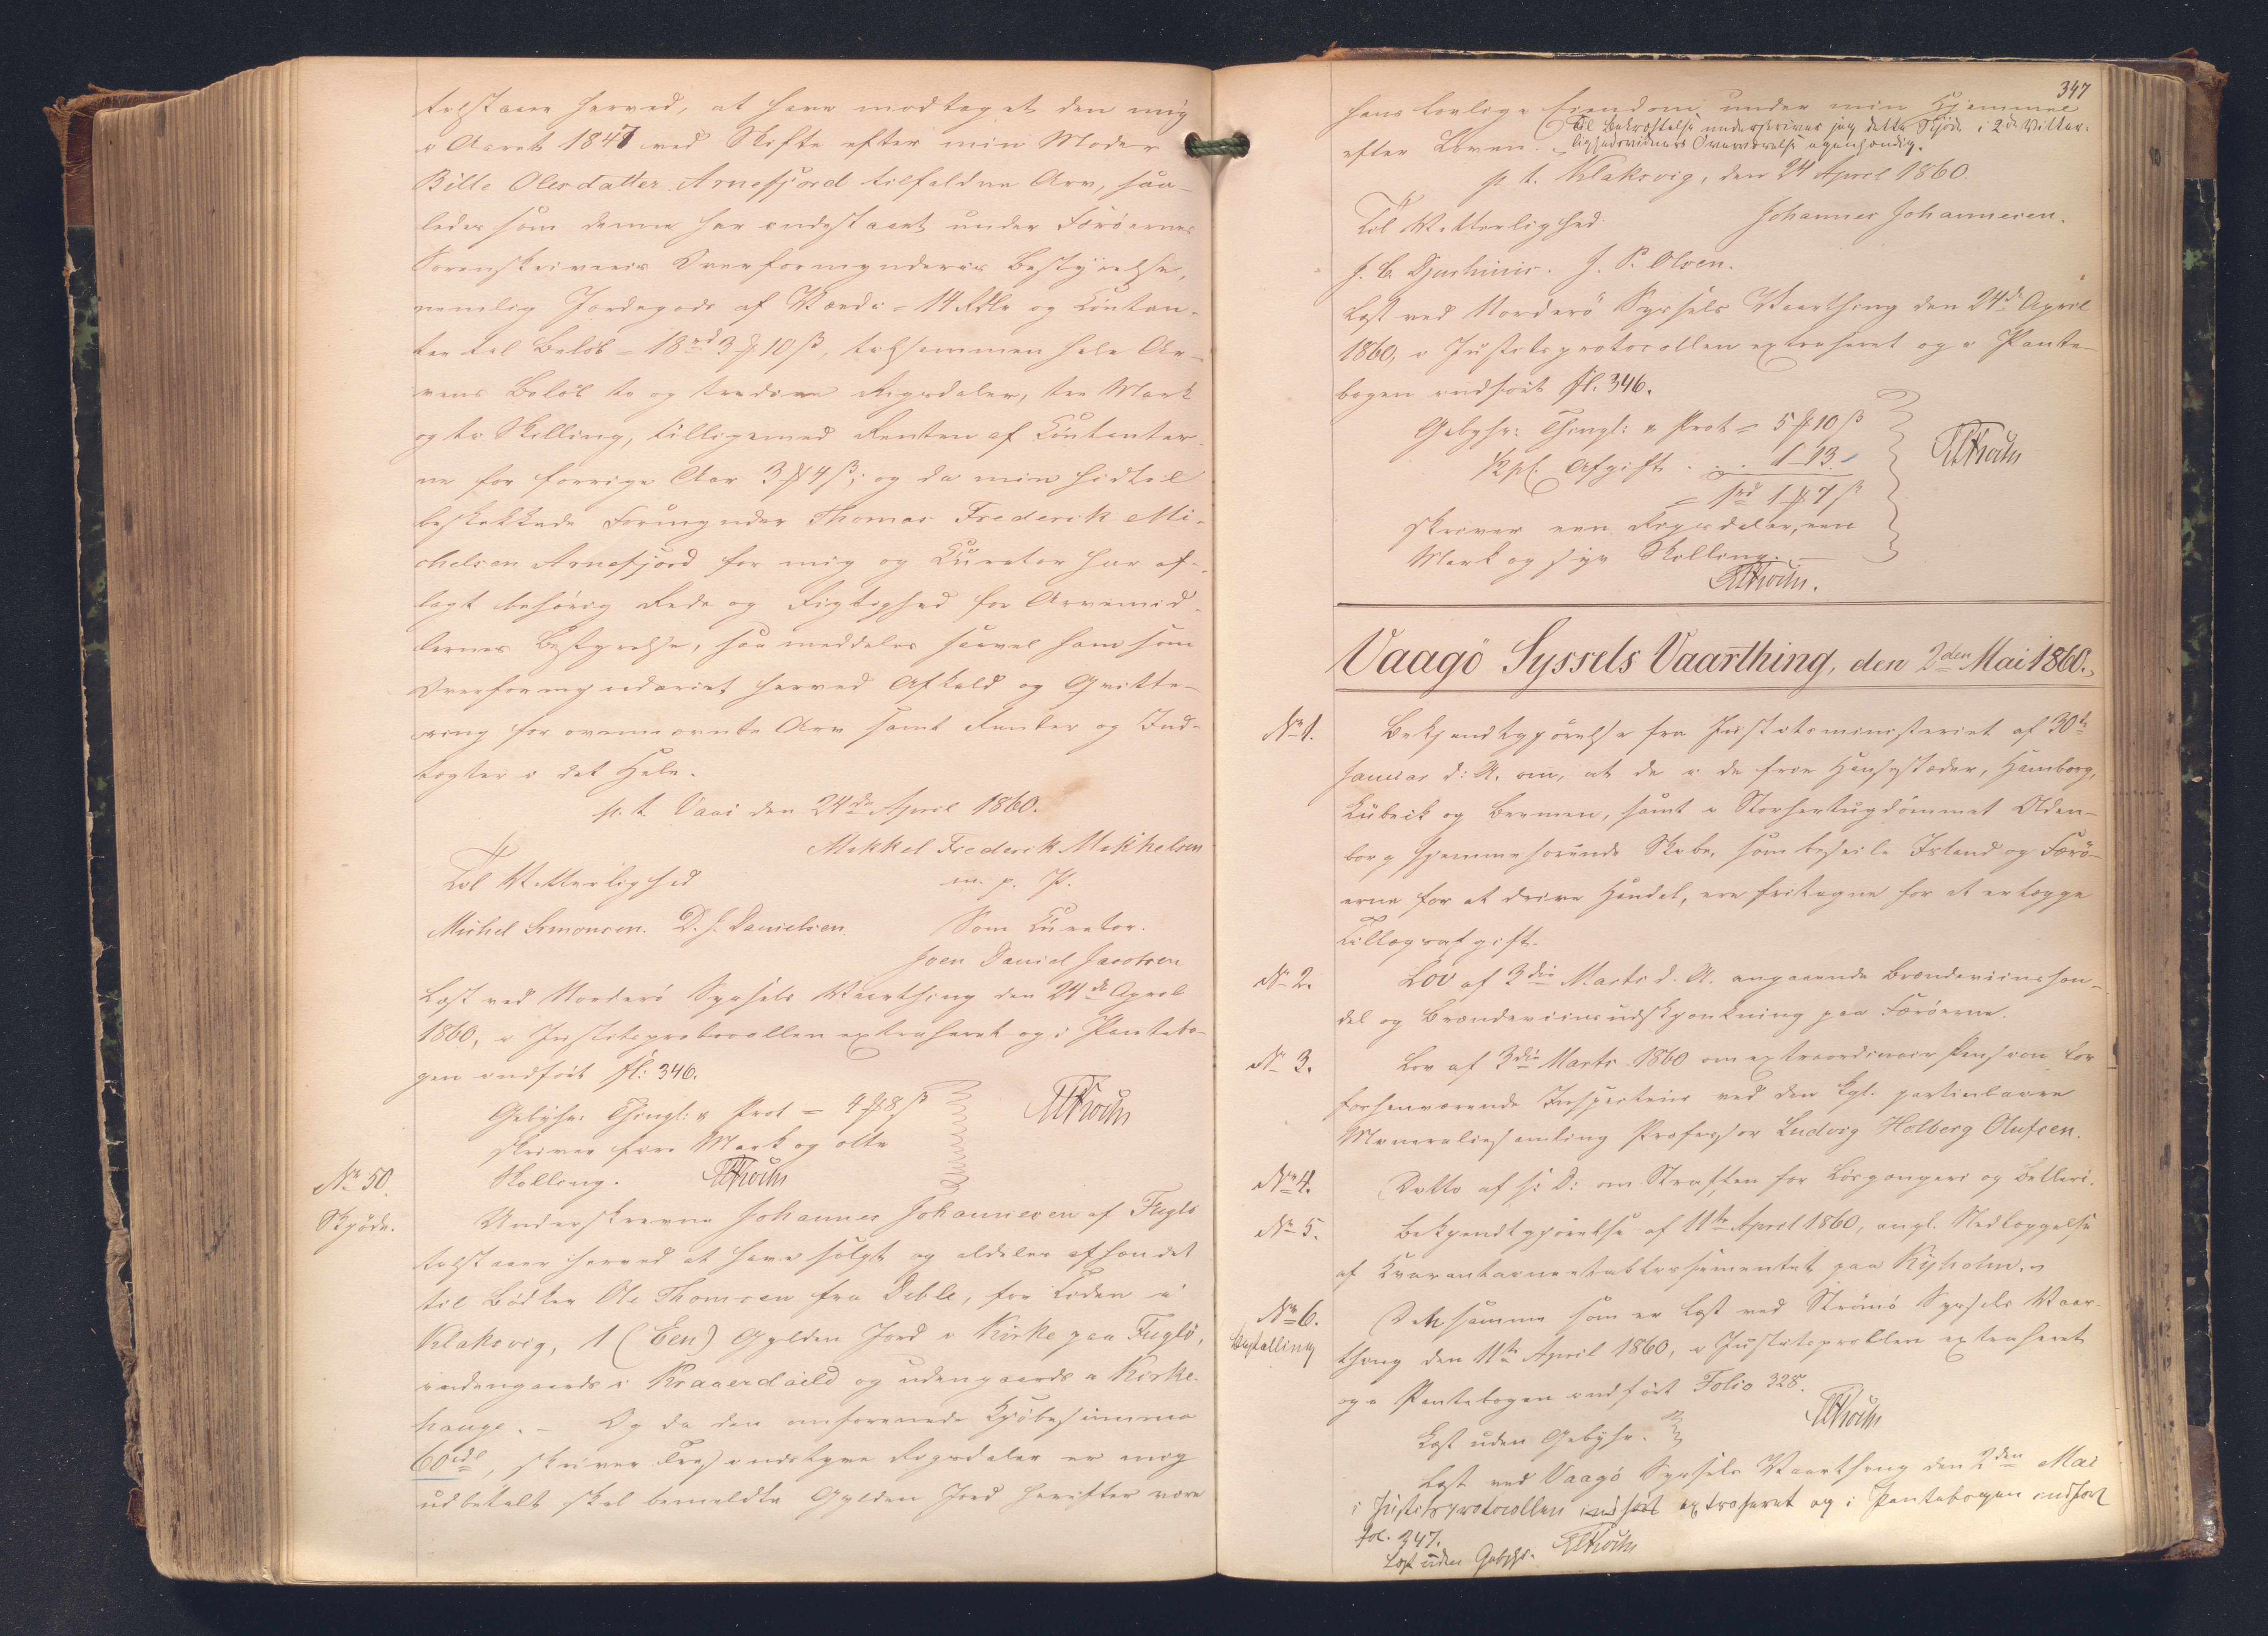 tilstaaer herved, at have modtaget den mig
i Aaret 1847 ved Skifte efter min Moder
Bille Olesdatter Arnefjord tilfaldne Arv, saa-
ledes som denne har indestaaet under Færöernes
Sorenskriveries Overformynderies Bestyrelse,
nemlig Jordegods af Værdi = 14 Rdlr og Contan-
ter til Belöb = 18 rd 3 ℳ 10 ß, tilsammen hele Ar-
vens Belöb to og tredive Rigsdaler, tre Mark
og ti Skilling, tilligemed Renten af Contanter-
ne for forrige Aar 3 ℳ 4 ß; og da min hidtil
beskikkede Formynder Thomas Frederik Mi-
chelsen Arnefjord for mig og Curator har af-
lagt behörig Rede og Rigtighed for Arvemid-
lernes Bestyrelse, saa meddeles saavel ham som
Overformynderiet herved Afkald og Qvitte-
ring for ovennævnte Arv samt Renter og Ind-
tægter i det Hele.
p. t. Vaai den 24de April 1860.
Mikkel Frederik Mikkelsen
Til Vitterlighed m. p. P.
Michel Simonsen. D. J. Danielsen. Som Curator.
Joen Daniel Jacobsen
Læst ved Norderö Syssels Vaarthing den 24de April
1860, i Justitsprotocollen extraheret og i Pantebo-
gen indfört fl: 346.
Gebyhr: Thingl: & Prot = 4 ℳ 8 ß
skriver fire Mark og otte
Skilling.
No 50.
Skjöde.
Underskrevne Johannes Johannesen af Fuglö
tilstaaer herved at have solgt og aldeles afhændet
til Bödker Ole Thomsen fra Deble, for Tiden i
Klaksvig, 1 (Een) Gylden Jord i Kirke paa Fuglö,
indengaards i Kraaerdaild og udengaards i Kirke-
hauge. - Og da den omforenede Kjöbesumma
60 rdl, skriver Tresindstyve Rigsdaler er mig
udbetalt skal bemeldte Gylden Jord herefter være
347
hans lovlige Eiendom under min Hjemmel
efter Loven. Til Bekræftelse underskriver jeg dette Skjöde i 2de Vitter-
lighedsvidners Overværelse egenhændig.
p. t. Klaksvig, den 24 April 1860.
Til Vitterlighed: Johannes Johannesen.
J. C. Djurhuus. J. P. Olsen.
Læst ved Norderö Syssels Vaarthing den 24de April
1860, i Justitsprotocollen extraheret og i Pante-
bogen indfört fl. 346.
Gebyhr: Thingl: & Prot = 5 ℳ 10 ß
½ pCt. Afgift . . . 1 - 13 -
= 1 rd 1 ℳ 7 ß
skriver een Rigsdaler, een
Mark og syv Skilling.
Vaagö Syssels Vaarthing, den 2den Mai 1860.
No 1. Bekjendtgjörelse fra Justitsministeriet af 30te
Januar d: A. om, at de i de frie Hansestæder, Hamborg,
Lübeck og Bremen, samt i Storhertugdömmet Olden-
borg hjemmehörende Skibe, som beseile Island og Færö-
erne for at drive Handel, ere fritagne for at erlægge
Tillægsafgift.
No 2. Lov af 3die Marts d. A. angaaende Brændeviinshan-
del og Brændeviinsudskjænkning paa Færöerne.
No 3. Lov af 3die Marts 1860 om extraordinair Pension for
forhenværende Inspecteur ved den kgl. particulaire
Mineraliesamling Professor Ludvig Holberg Olufsen.
No 4. Ditto af s: D: om Straffen for Lösgængeri og Betleri.
No 5. Bekjendtgjörelse af 11te April 1860, angl. Nedlæggelse
af Qvarantaineetablissementet paa Kyholm.
No 6. Den samme som er læst ved Strömö Syssels Vaar-
Bestalling
thing den 11te April 1860, i Justitsprotllen extraheret
og i Pantebogen indfört Folio 328.
Læst uden Gebyhr.
Læst ved Vaagö Syssels Vaarthing den 2den Mai
i Justitsprotocollen indfört extraheret og i Pantebogen indfört
fol. 347.
Læst uden Gebyhr.